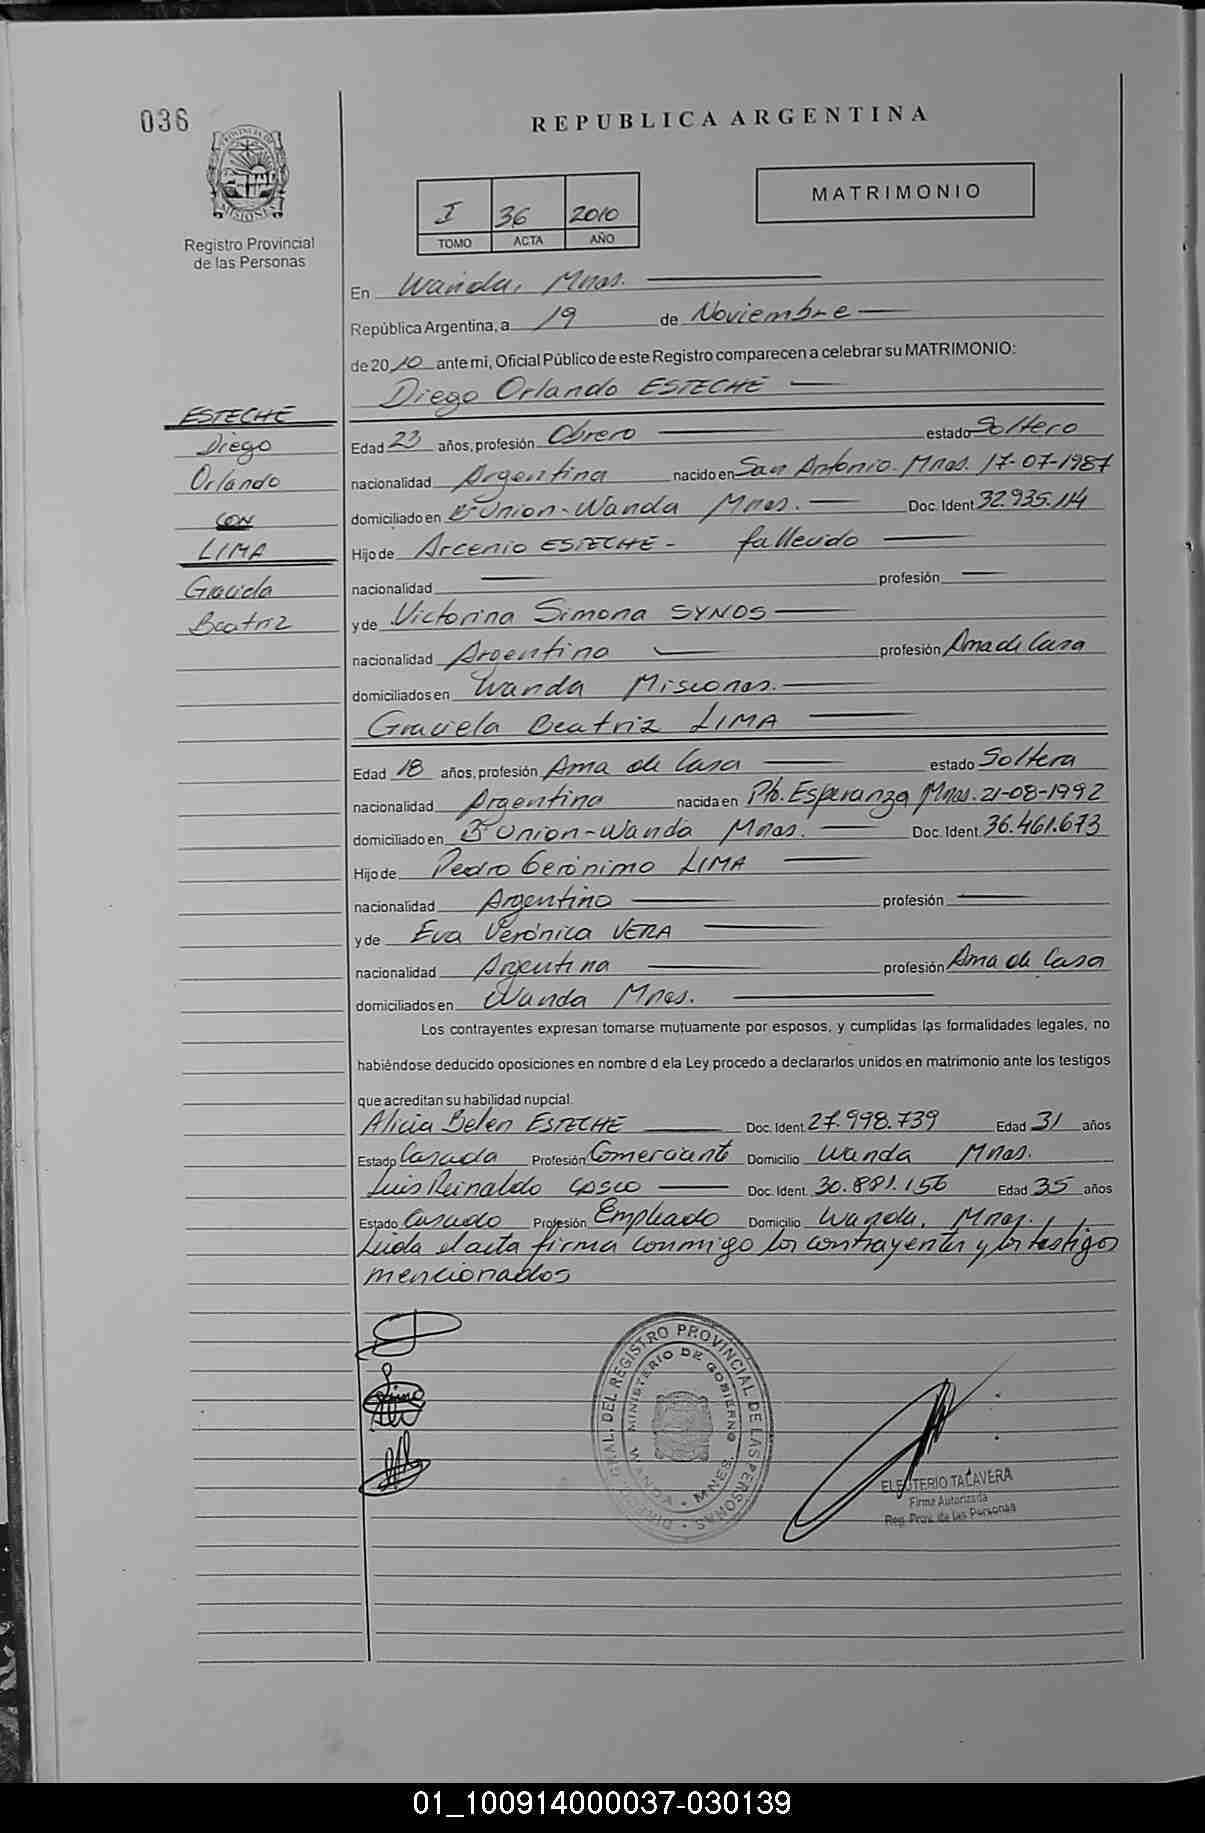 036
REPUBLICA ARGENTINA
PROVINCIA DE MISIONES
Registro Provincial
de las Personas
I 36 2010
TOMO ACTA AÑO
MATRIMONIO
En Wanda, Mnes.
República Argentina, a 19 de Noviembre
de 2010 ante mi, Oficial Público de este Registro comparecen a celebrar su MATRIMONIO:
Diego Orlando ESTECHÉ
ESTECHÉ
Diego
Orlando
CON
LIMA
Graciela
Beatriz
Edad 23 años, profesión Obrero estado Soltero
nacionalidad Argentina nacido en San Antonio-Mnes. 17-07-1987
domiciliado en Bº Union-Wanda Mnes. Doc. Ident. 32.935.114
Hijo de Arcenio ESTECHÉ - fallecido
nacionalidad profesión
y de Victorina Simona SYNOS
nacionalidad Argentina profesión Ama de Casa
domiciliados en Wanda Misiones.
Graciela Beatriz LIMA
Edad 18 años, profesión Ama de Casa estado Soltera
nacionalidad Argentina nacida en Pto. Esperanza Mnes. 21-08-1992
domiciliado en Bº Union-Wanda Mnes. Doc. Ident. 36.461.673
Hijo de Pedro Gerónimo LIMA
nacionalidad Argentino profesión
y de Eva Verónica VERA
nacionalidad Argentina profesión Ama de Casa
domiciliados en Wanda Mnes.
Los contrayentes expresan tomarse mutuamente por esposos, y cumplidas las formalidades legales, no
habiéndose deducido oposiciones en nombre d ela Ley procedo a declararlos unidos en matrimonio ante los testigos
que acreditan su habilidad nupcial.
Alicia Belen ESTECHÉ Doc. Ident. 27.998.739 Edad 31 años
Estado Casada Profesión Comerciante Domicilio Wanda Mnes.
Luis Reinaldo Doc. Ident. 30.881.156 Edad 35 años
Estado Casado Profesión Empleado Domicilio Wanda, Mnes.
Leida el acta firma conmigo los contrayentes y los testigos
mencionados
DIREC. GRAL. DEL REGISTRO PROVINCIAL DE LAS PERSONAS
MINISTERIO DE GOBIERNO
WANDA - MNES.
ELEUTERIO TALAVERA
Firma Autorizada
Reg. Prov. de las Personas
01_100914000037-030139